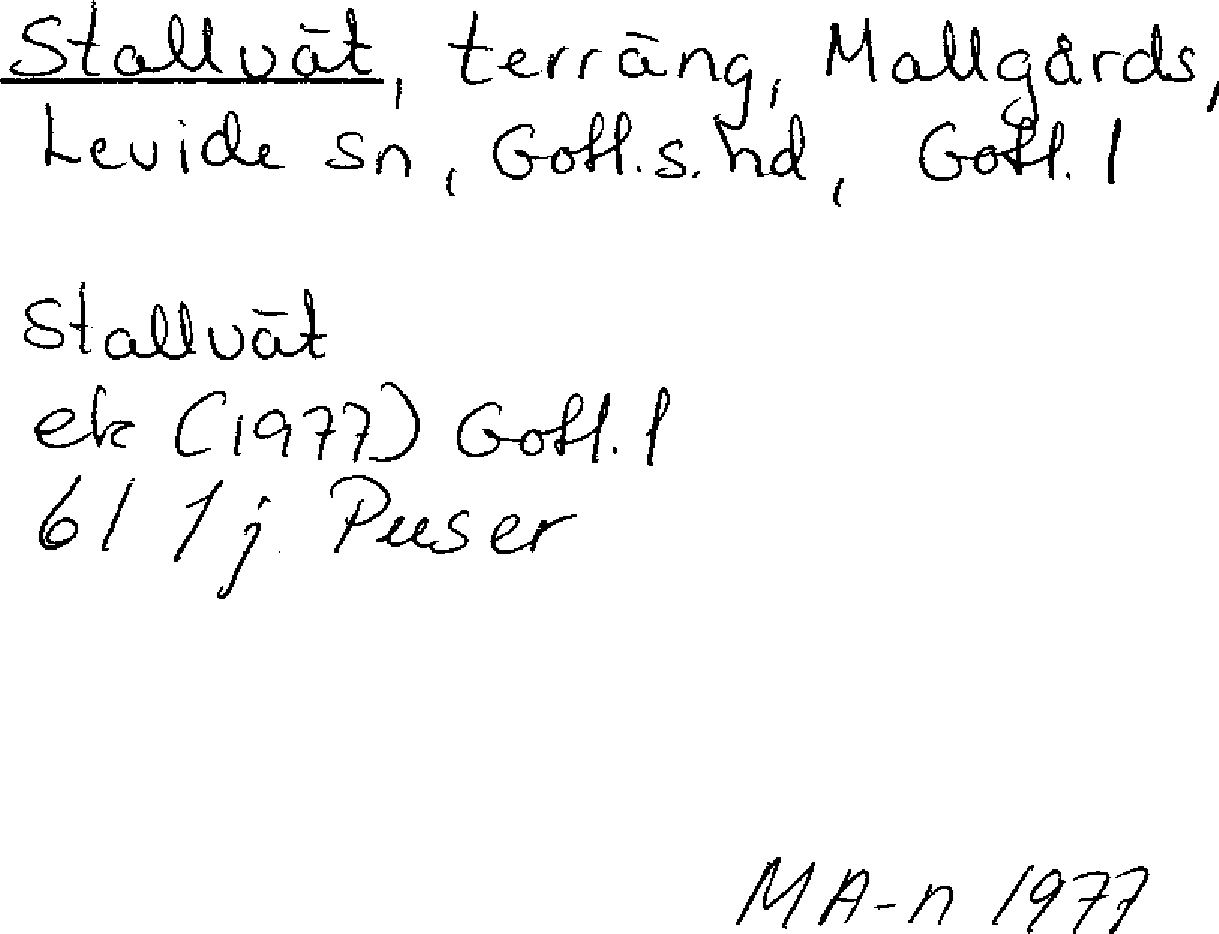 Stallvät, terräng, Mallgårds,
Levide sn, Gotl.s.hd, Gotl. l
Stallvät
ek (1977) Gotl. l
6I 1j Puser
MA-n 1977